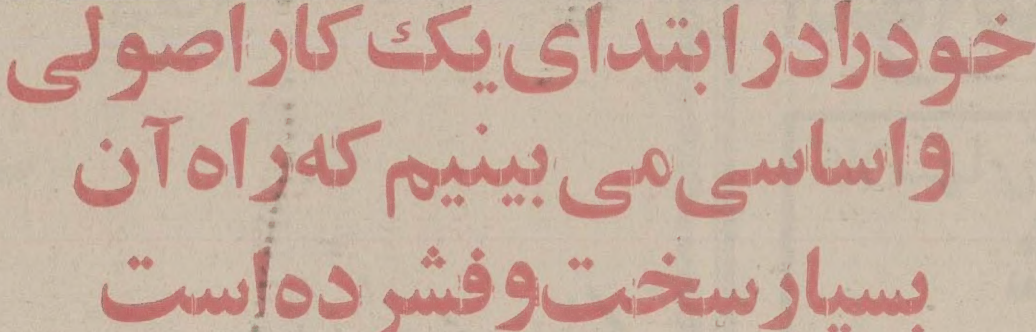 خود را در ابتدای یک کار اصولی
و اساسی می بینیم که راه آن
بسیار سخت و فشرده است